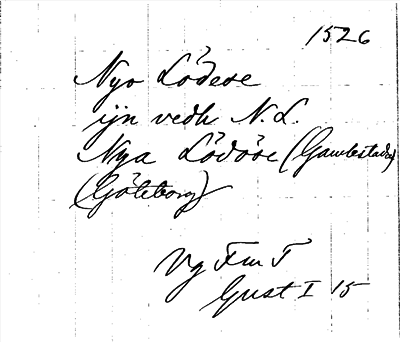 1526
Nyo Lödese
ijn vedh N.L.
Nya Lödöse (Gamlestaden)
(Göteborg)
Vg Fm T
Gust I 15